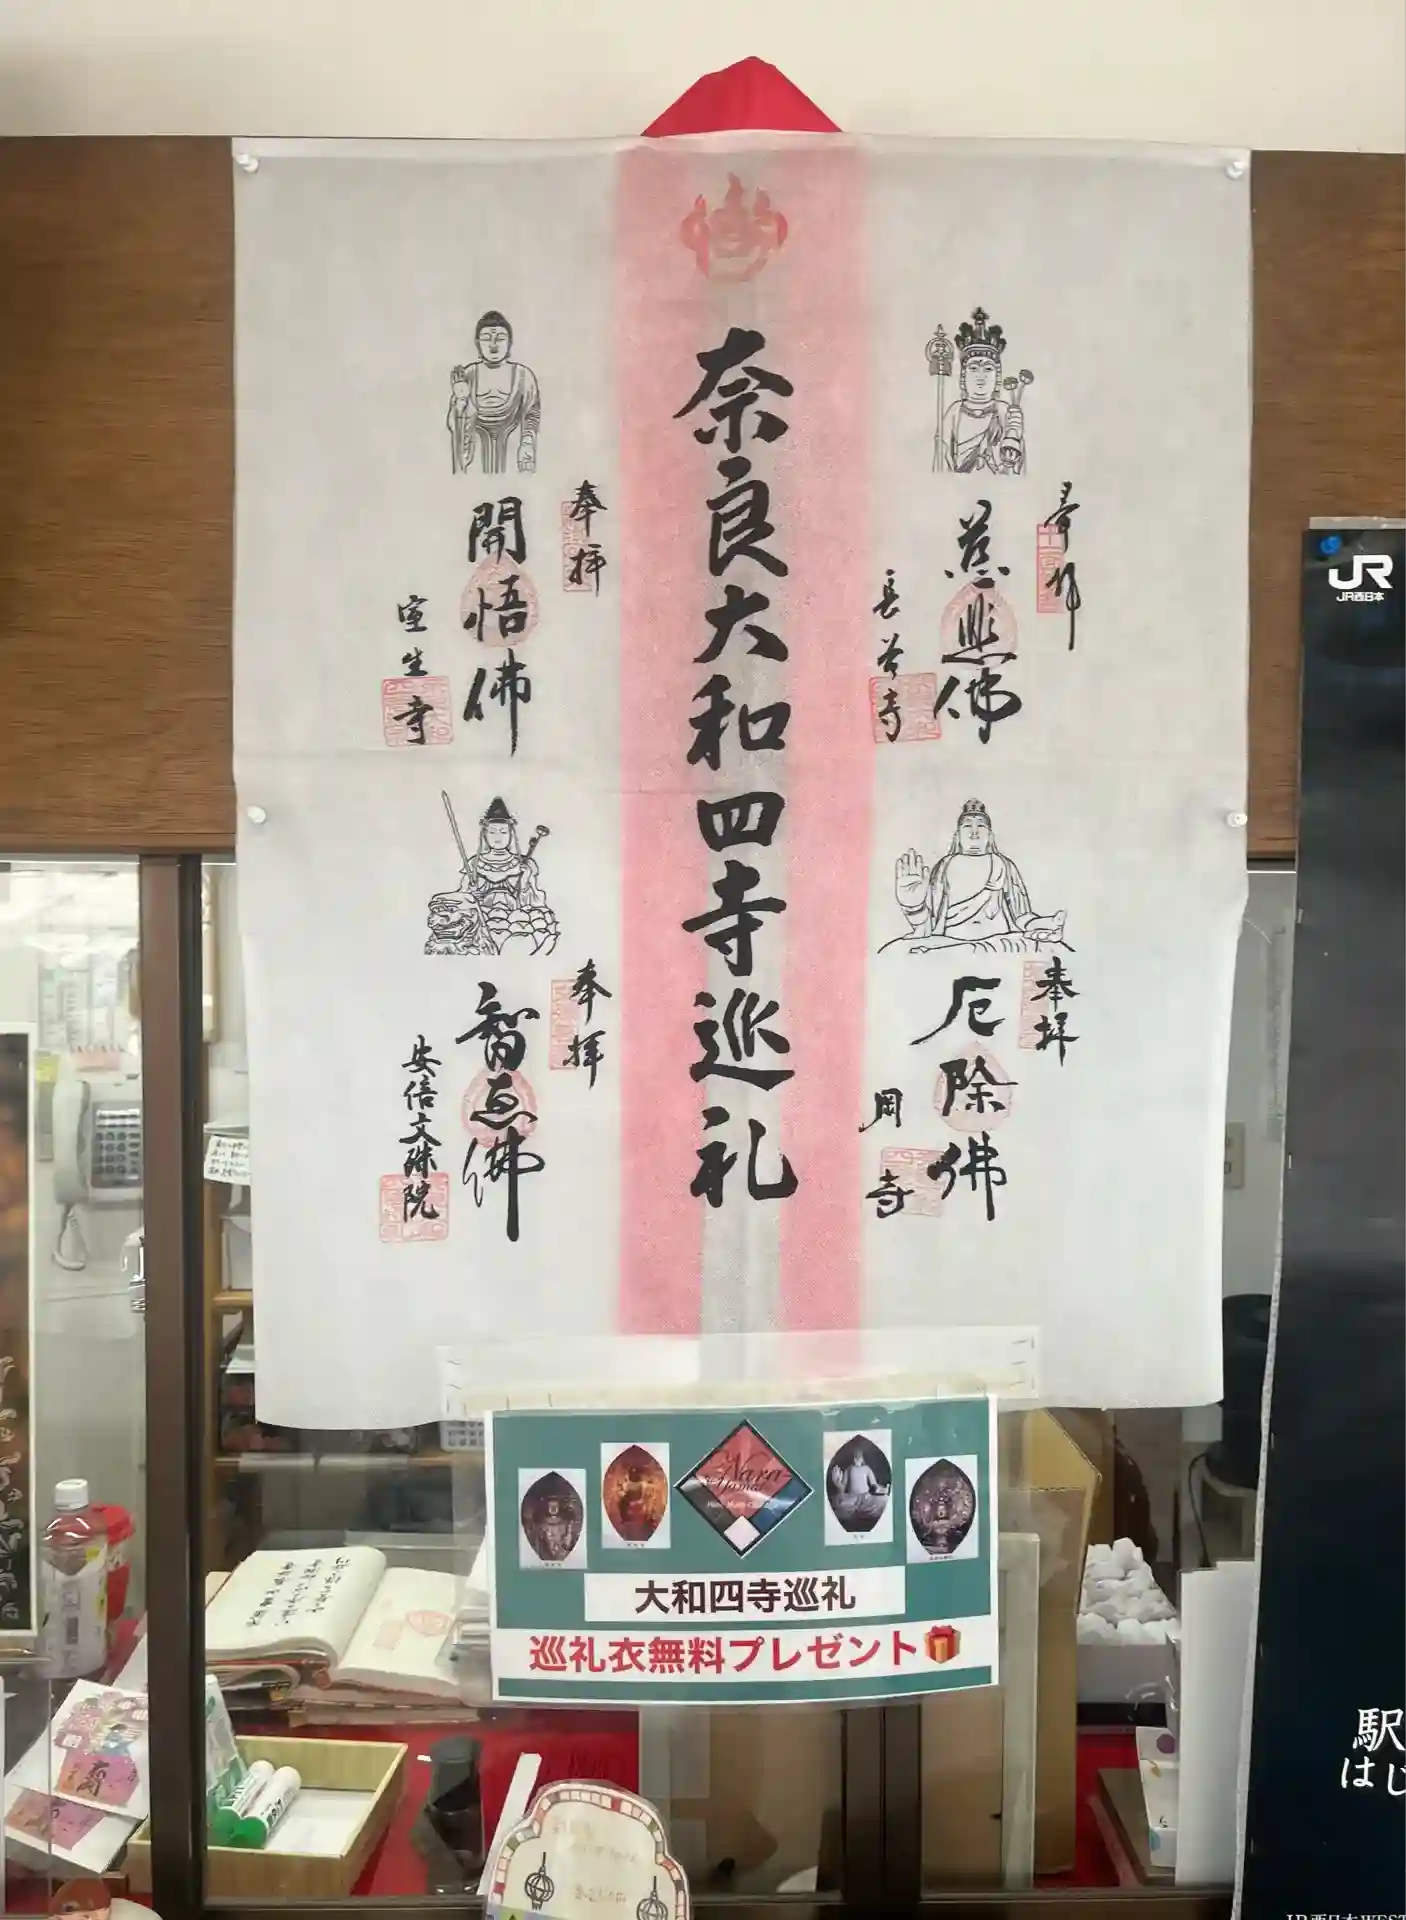 奈良大和四寺巡礼
奉拝
慈悲佛
長谷寺
奉拝
開悟佛
室生寺
奉拝
厄除佛
岡寺
奉拝
智恵佛
安倍文殊院
JR
JR西日本
Nara
大和四寺巡礼
巡礼衣無料プレゼント
駅
はじ